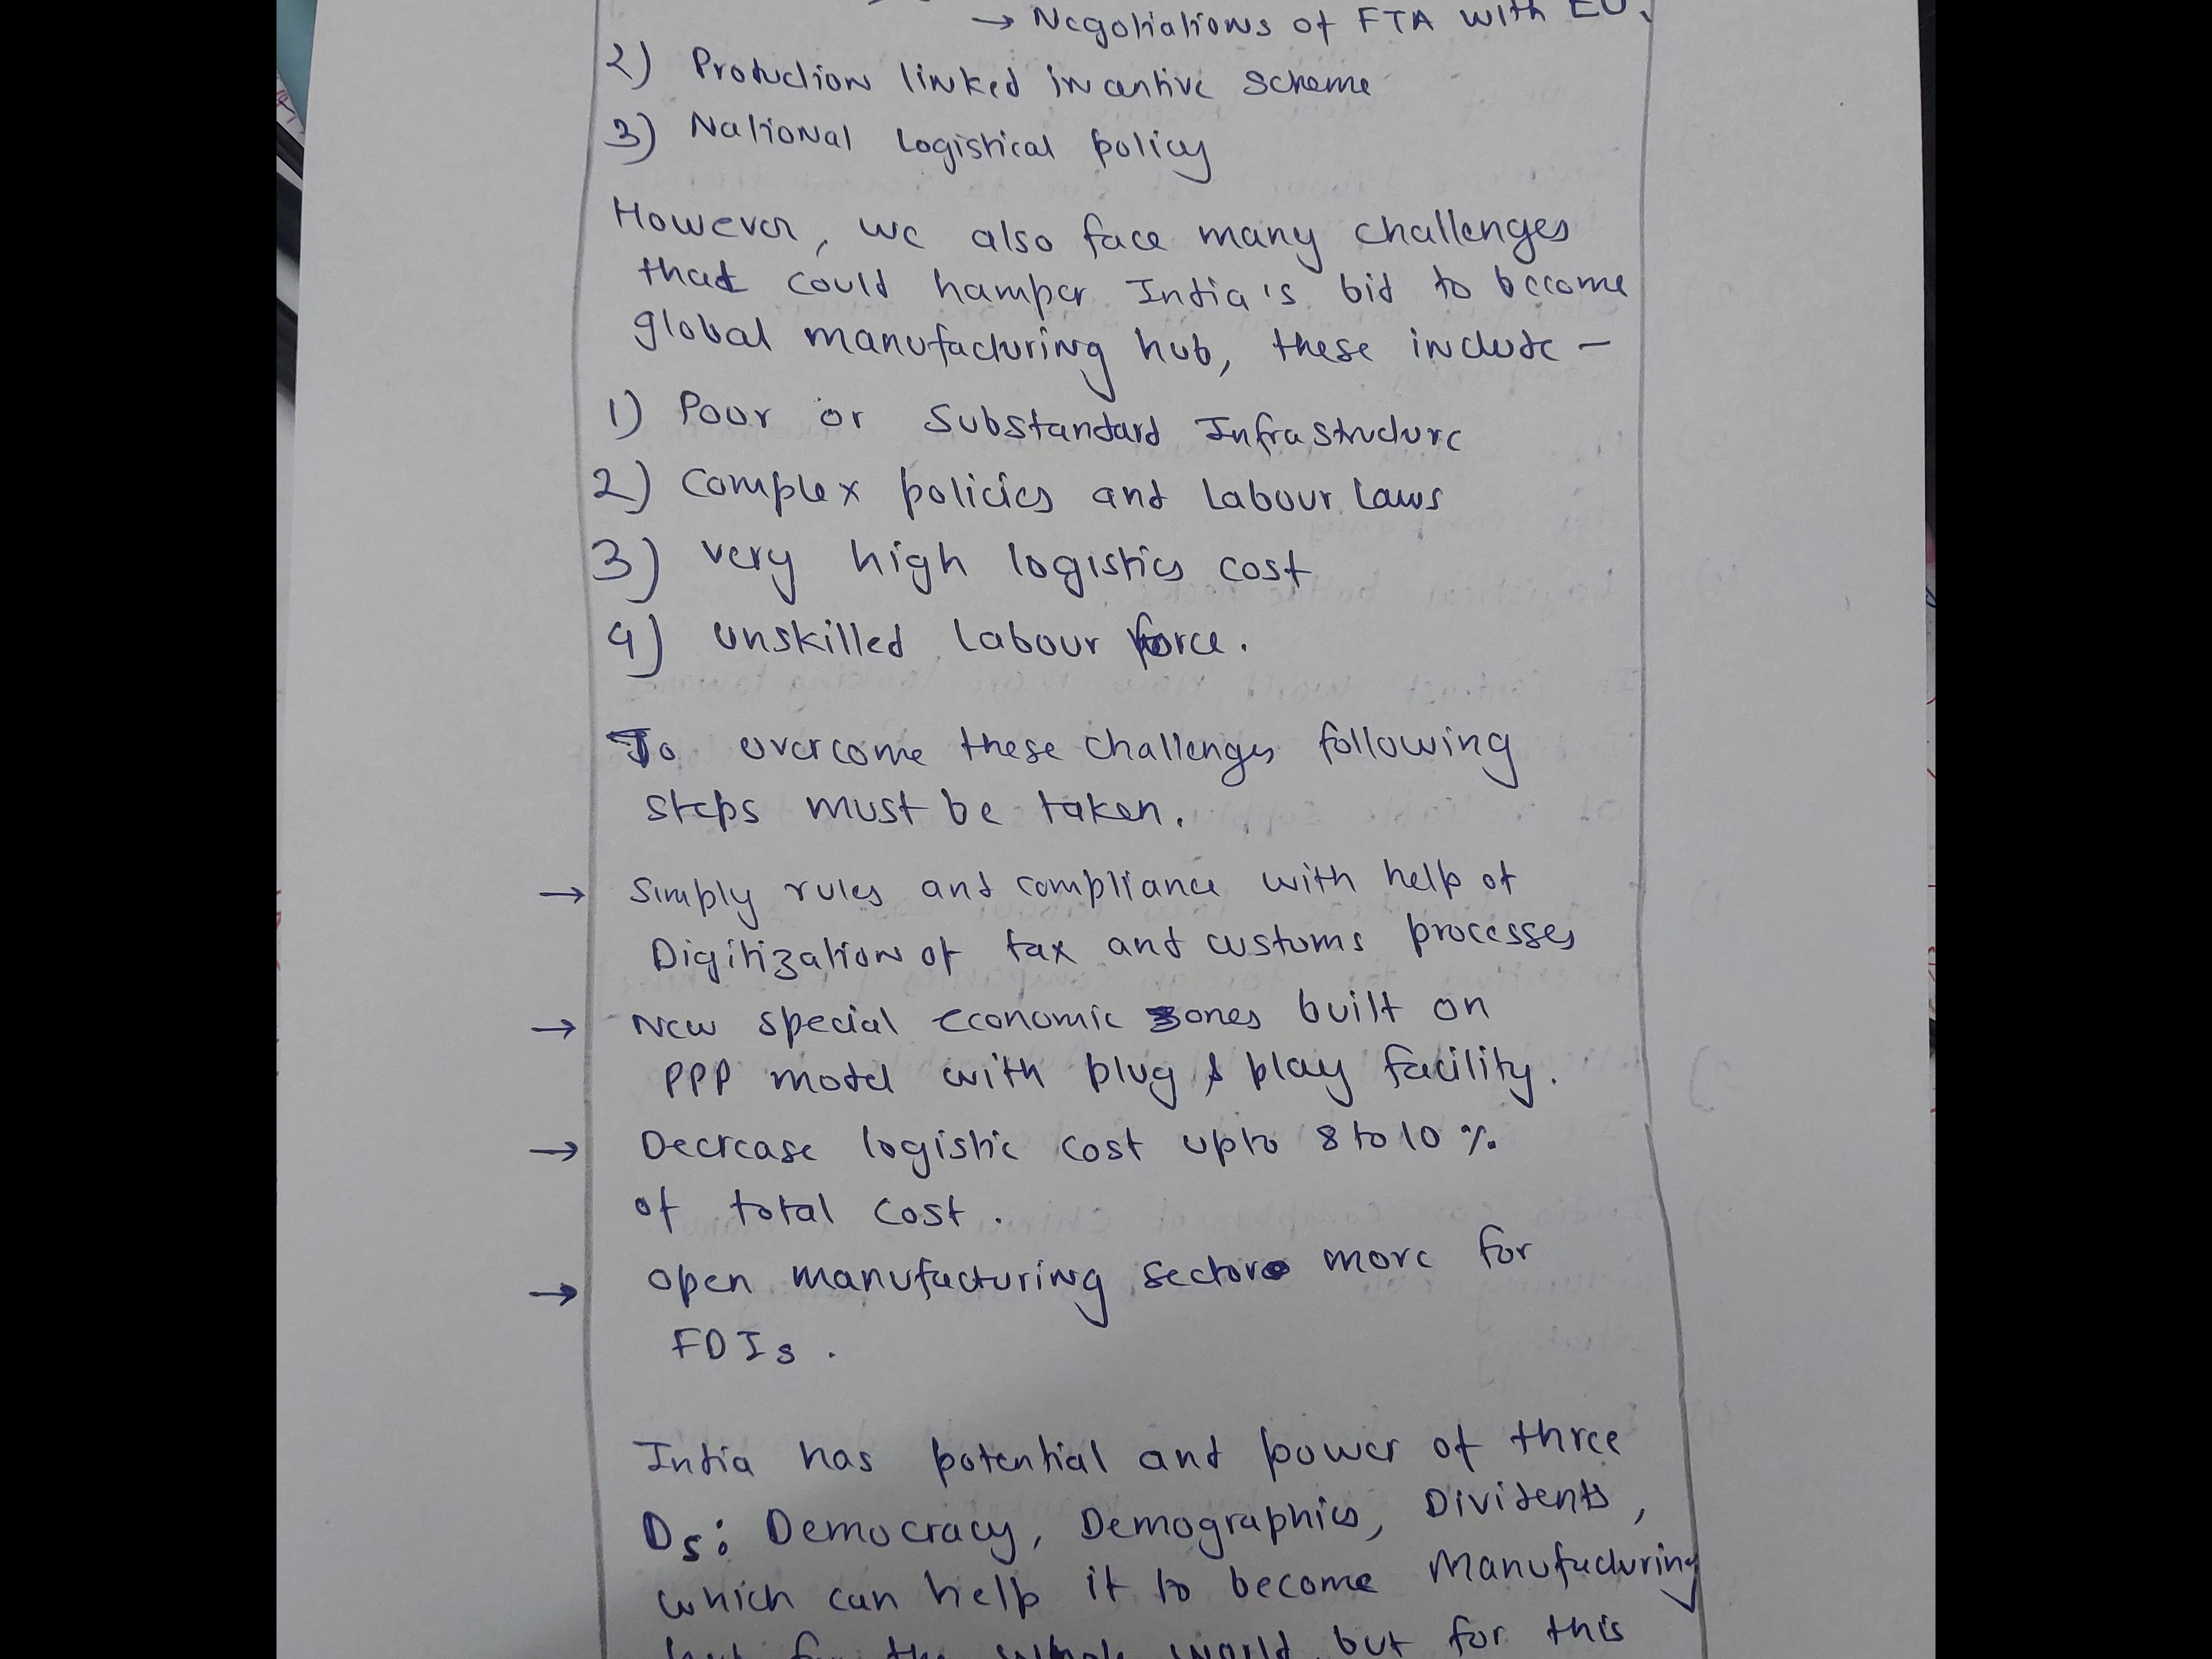 → Negotiations of FTA with EU.
2) Production linked incentive scheme
3) National Logistical policy
However, we also face many challenges
that could hamper India's bid to become
global manufacturing hub, these include -
1) Poor or Substandard Infrastructure
2) Complex policies and Labour Laws
3) very high logistics cost
4) unskilled Labour force.
To overcome these challenges following
steps must be taken.
→ Simply rules and compliance with help of
Digitization of tax and customs processes
→ New special economic zones built on
PPP model with plug & play facility.
→ Decrease logistic cost upto 8 to 10 %
of total cost.
→ open manufacturing sector more for
FDIs.
India has potential and power of three
Ds: Democracy, Demographics, Dividents,
which can help it to become Manufacturing
hub for the whole world but for this